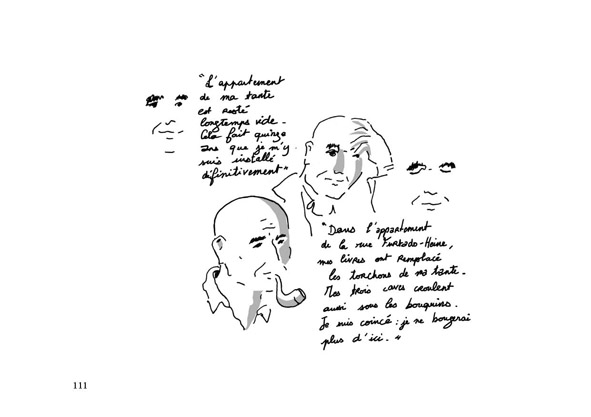 "L'appartement
de ma tante
est resté
longtemps vide.
Cela fait quinze
ans que je m'y
suis installé
définitivement"
"Dans l'appartement
de la rue Furtado-Heine,
mes livres ont remplacé
les torchons de ma tante.
Mes trois caves croulent
aussi sous les bouquins.
Je suis coincé : je ne bougerai
plus d'ici. "
111